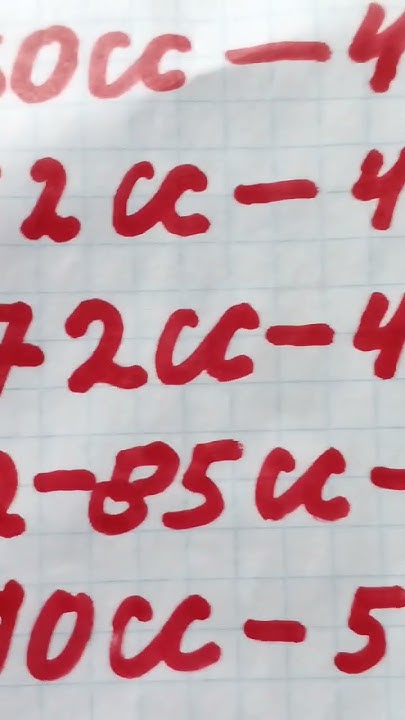 50cc - 4
2cc - 4
72cc - 4
2-85cc -
10cc - 5